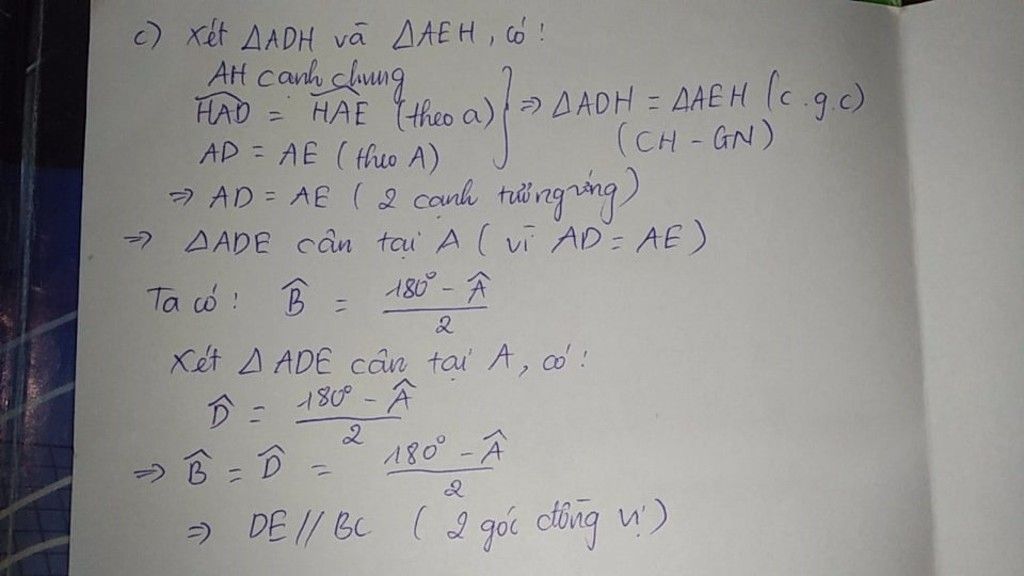 c) Xét ΔADH và ΔAEH, có:
AH cạnh chung
∠HAD = ∠HAE (theo a) } => ΔADH = ΔAEH (c.g.c)
(CH - GN)
AD = AE (theo A)
=> AD = AE (2 cạnh tương ứng)
=> ΔADE cân tại A (vì AD = AE)
Ta có: B̂ = (180° - Â)/2
Xét ΔADE cân tại A, có:
D̂ = (180° - Â)/2
=> B̂ = D̂ = (180° - Â)/2
=> DE // BC (2 góc đồng vị)